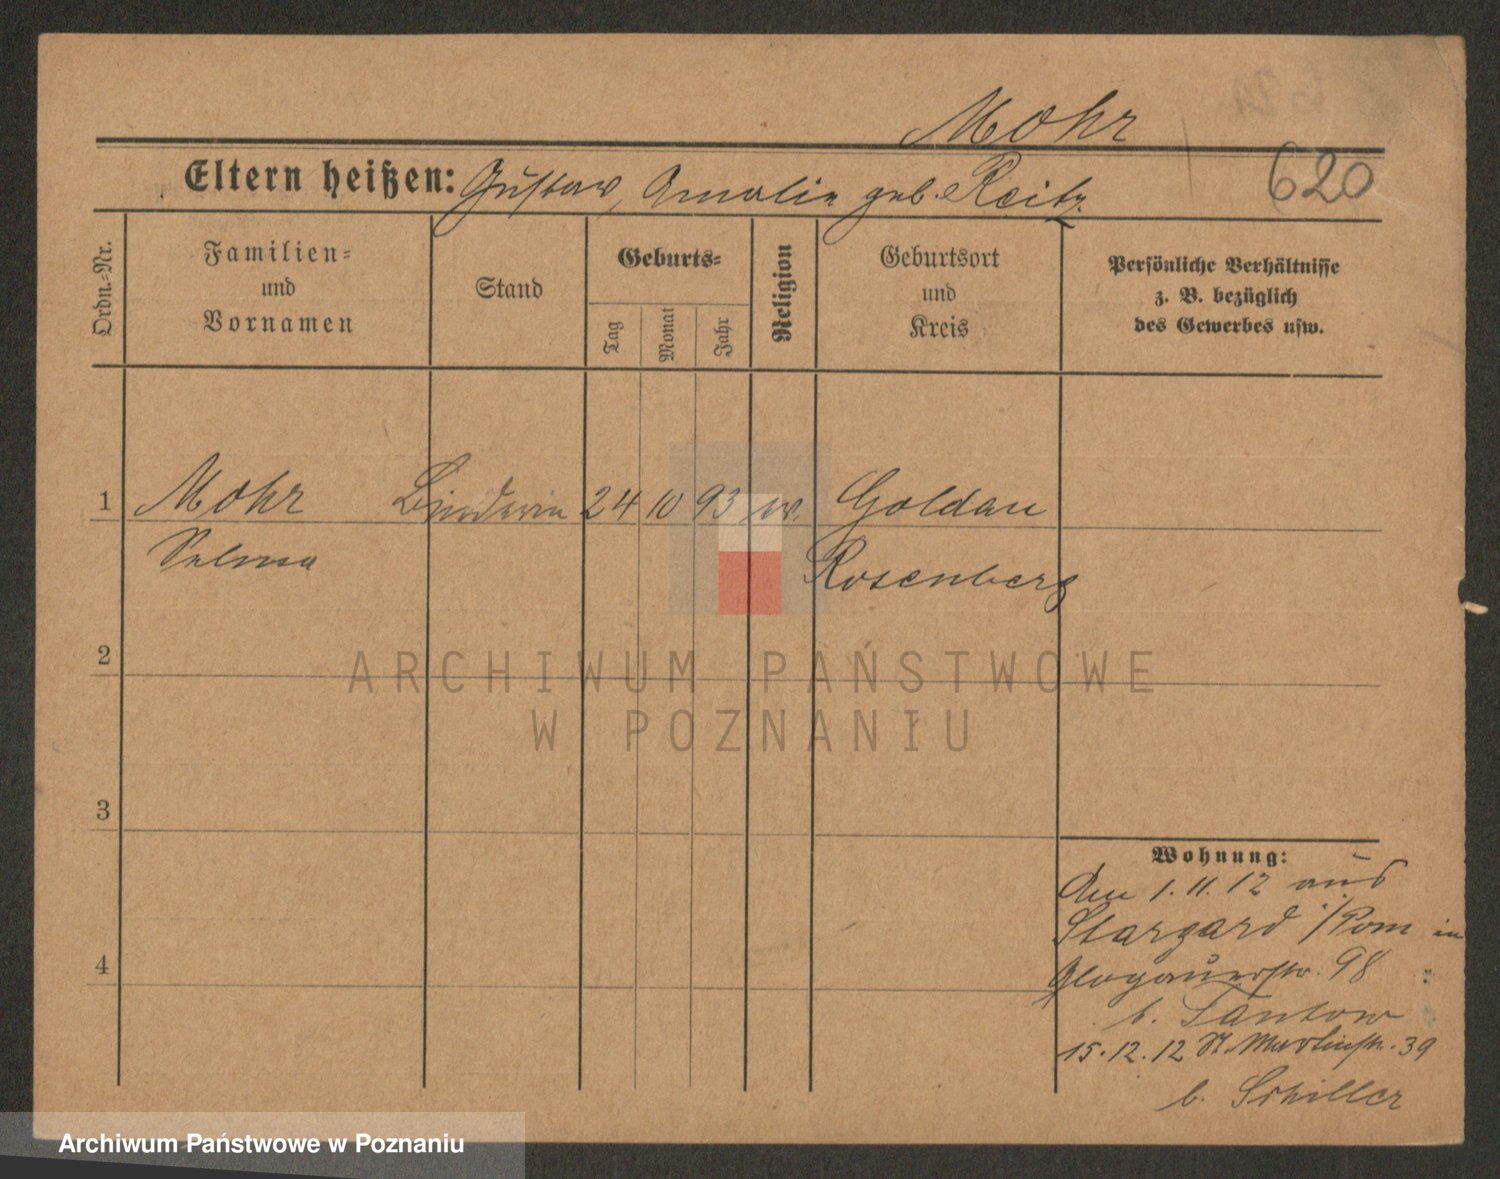 Mohr
620
Eltern heißen: Gustav, Amalie geb. Reitz.
Ordn.=Nr.
Familien=
und
Vornamen
Stand
Geburts=
Tag
Monat
Jahr
Religion
Geburtsort
und
Kreis
Persönliche Verhältnisse
z. B. bezüglich
des Gewerbes usw.
1 Mohr Binderin 24 10 93 Goldau
Selma Rosenberg
2
ARCHIWUM PAŃSTWOWE
W POZNANIU
3
Wohnung:
Am 1.11.12 aus
Stargard i/Pom in
4
Glogauerstr. 98
b. Tantow
15.12.12 St. Martinstr. 39
b. Schiller
Archiwum Państwowe w Poznaniu